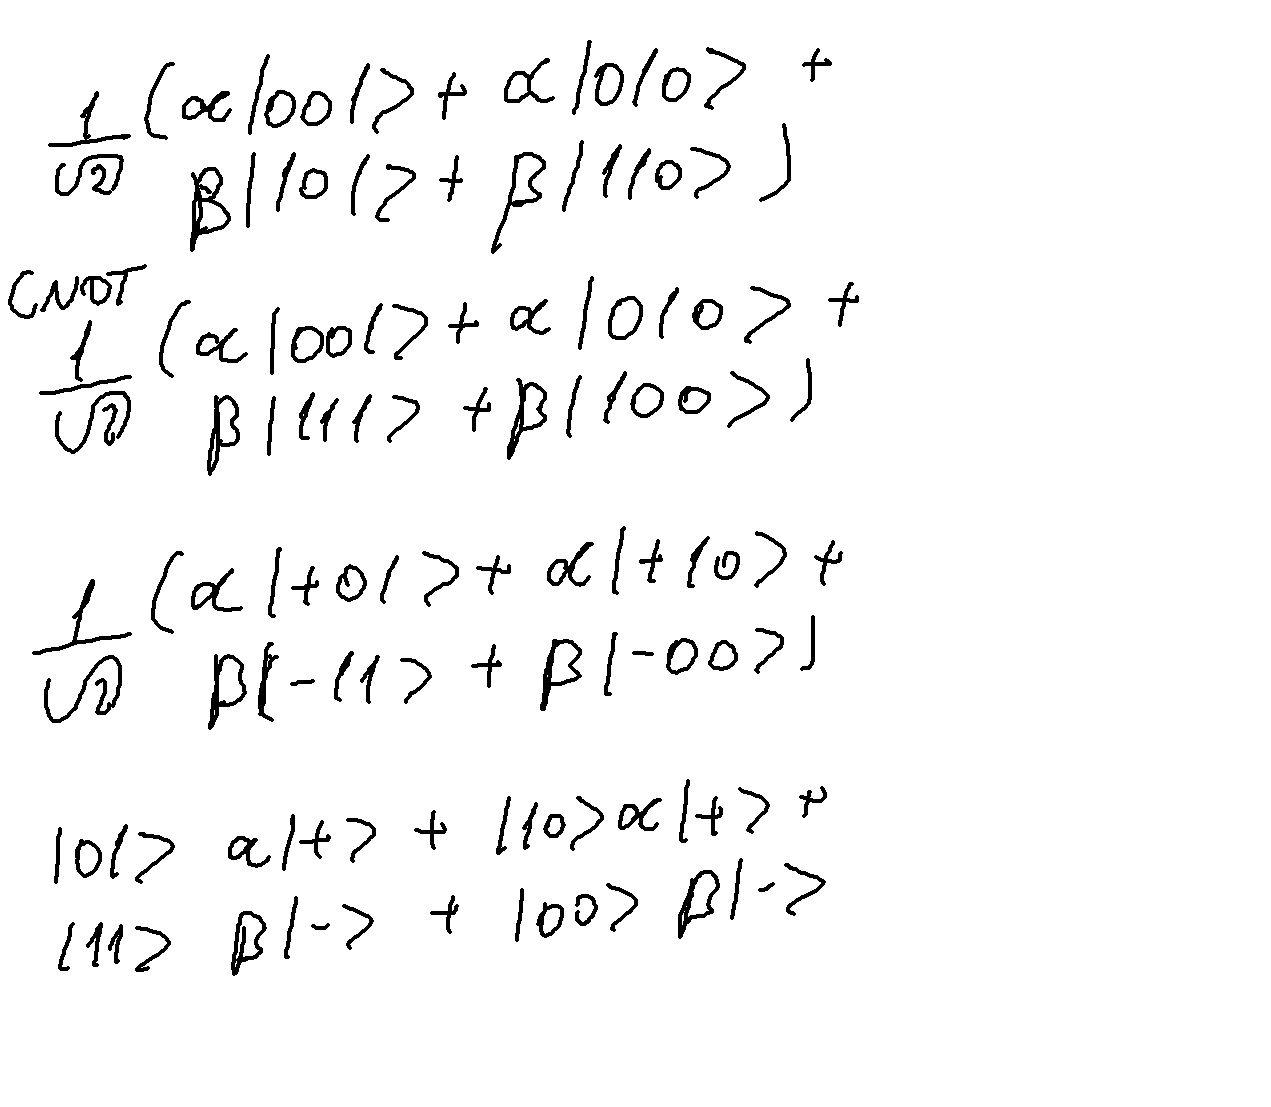 1/√2 (α|001> + α|010> +
β|101> + β|110>)
CNOT
1/√2 (α|001> + α|010> +
β|111> + β|100>)
1/√2 (α|+01> + α|+10> +
β|-11> + β|-00>)
|01> α|+> + |10> α|+> +
|11> β|-> + |00> β|->